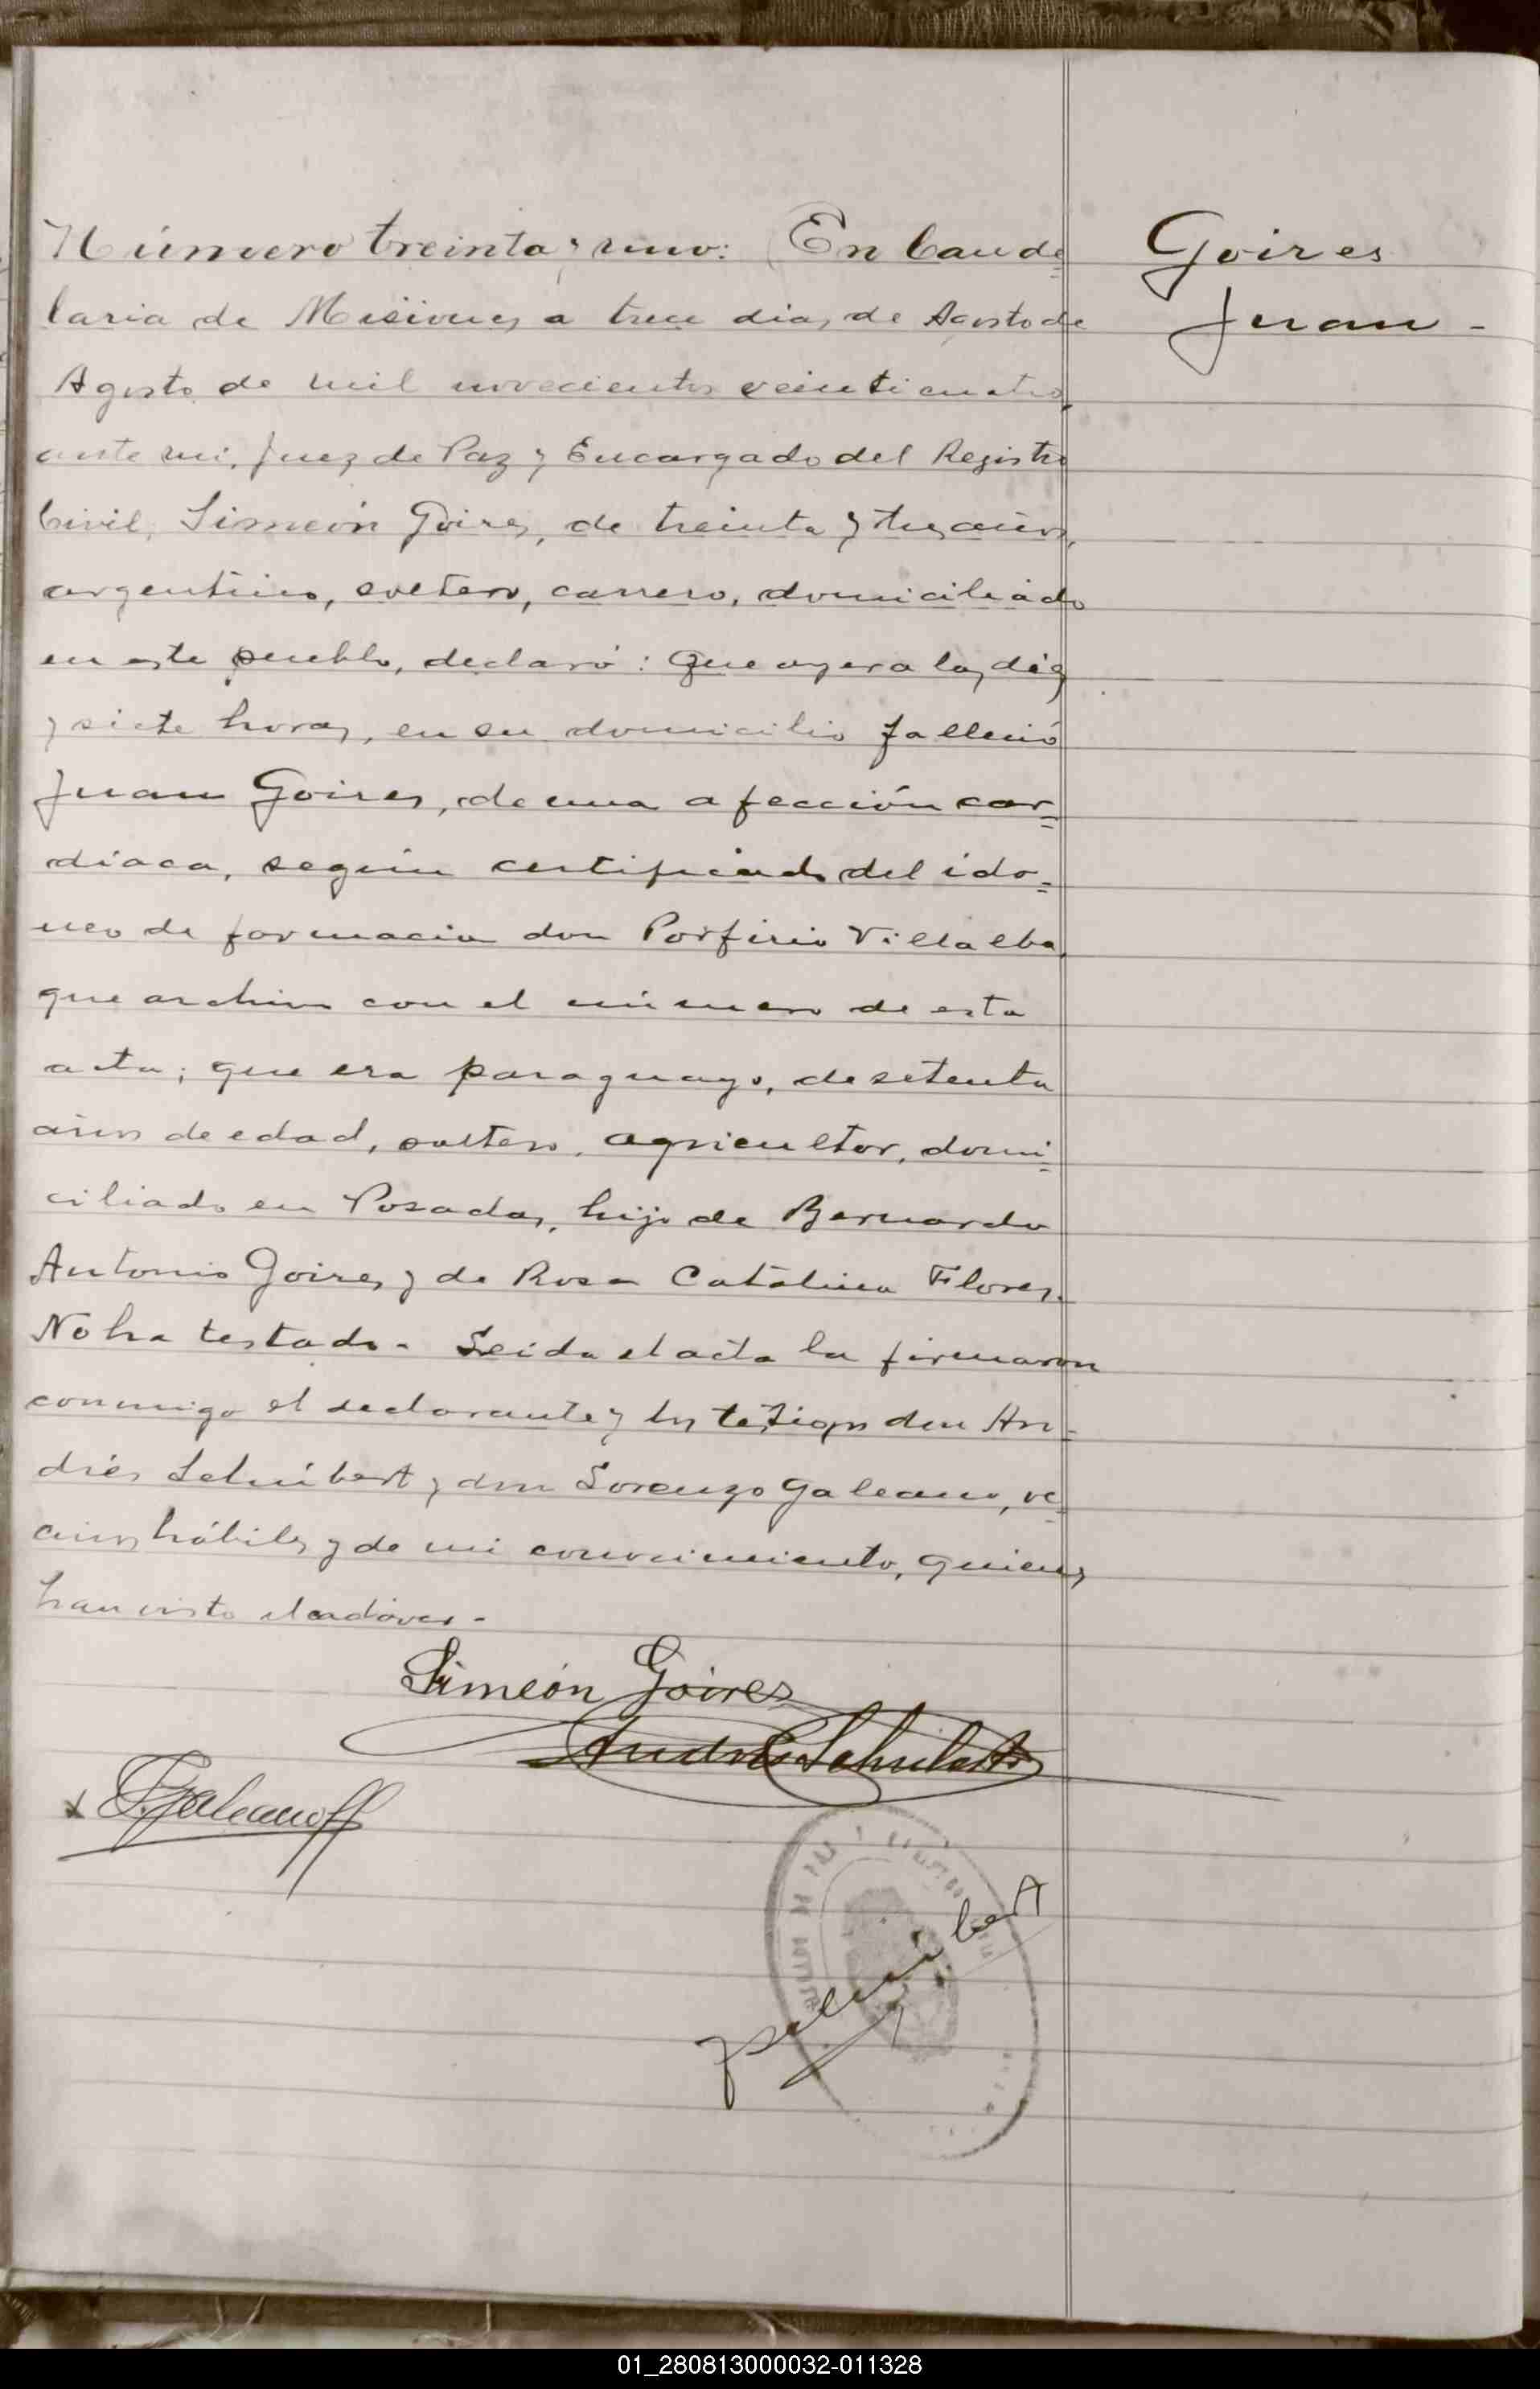 Número treinta y uno: En Cande=
laria de Misiones a trece dias de Agosto de
Agosto de mil novecientos veinticuatro,
ante mi, Juez de Paz y Encargado del Registro
Civil, Simeón Goires, de treinta y tres años,
argentino, soltero, carrero, domiciliado
en este pueblo, declaró: Que ayer a las diez
y siete horas, en su domicilio falleció
Juan Goires, de una afección car=
diaca, según certificado del ido=
neo de farmacia don Porfirio Villalba,
que archivo con el número de esta
acta; que era paraguayo, de setenta
años de edad, soltero, agricultor, domi=
ciliado en Posadas, hijo de Bernardo
Antonio Goires y de Rosa Catalina Flores.
No ha testado. Leida el acta la firmaron
conmigo el declarante y los testigos don An=
drés Schubert y don Lorenzo Galeano, ve=
cinos hábiles y de mi conocimiento, quienes
han visto el cadáver.-
Goires
Juan -
Simeón Goires
Andrés Schubert
x Galeano
01_280813000032-011328